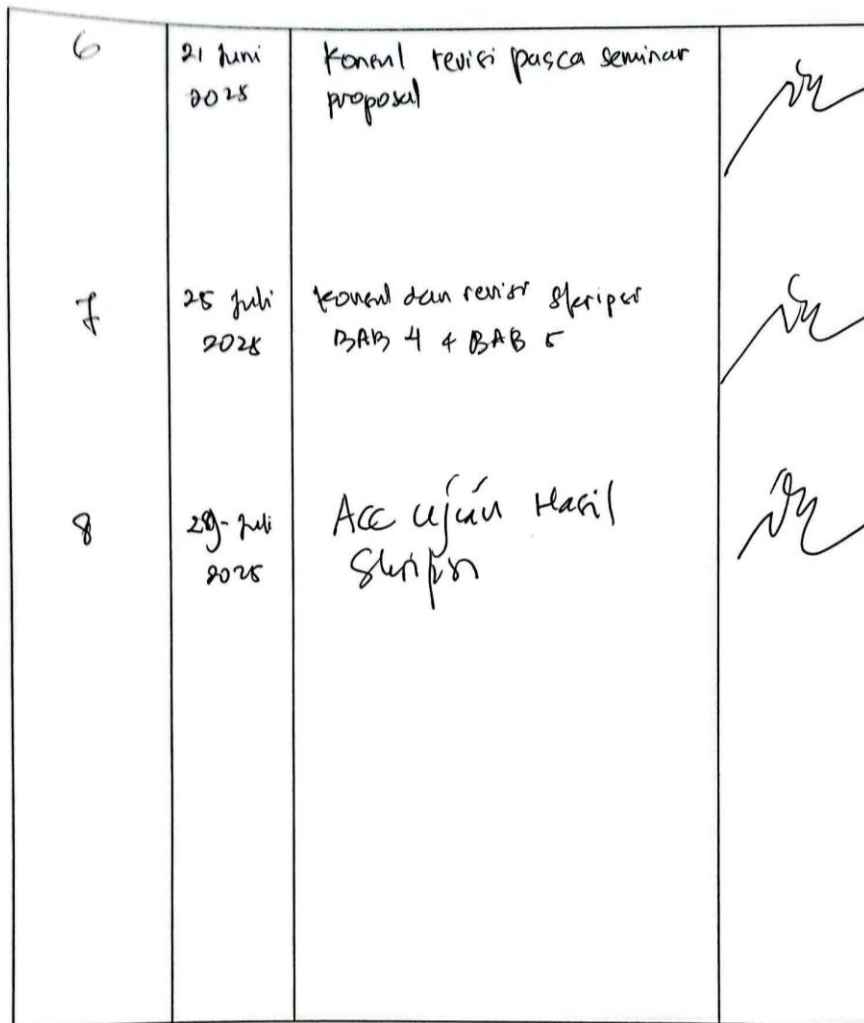 6
21 Juni
2025
Konsul revisi pasca seminar
proposal
7
25 Juli
2025
Konsul dan revisi Skripsi
BAB 4 & BAB 5
8
Juli
2025
Acc ujian Hasil
Skripsi